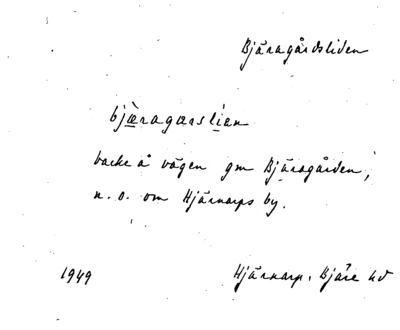 Bjäragårdsliden
bjæ̀ragarslían
backe å vägen gm Bjäragården,
n. o. om Hjärnarps by.
1949
Hjärnarp. Bjäre hd